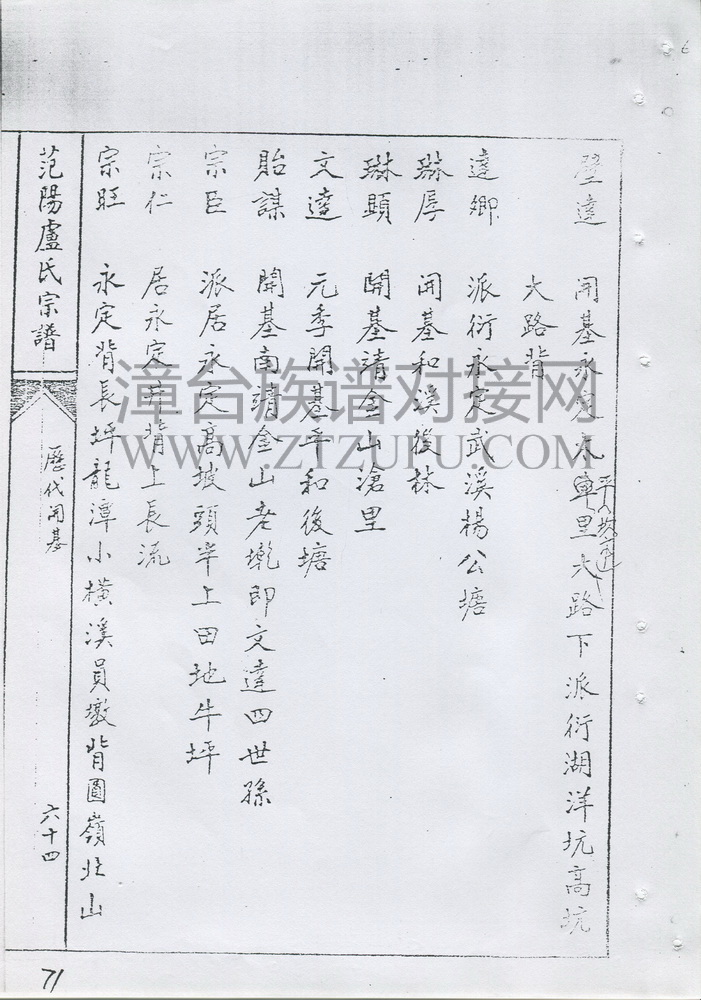 壁達 開基永定太平里大路下派衍湖洋坑高坑
大路背
達卿 派衍永定武溪楊公塘
琳厚 開基和溪後林
琳顯 開基靖金山滄里
文達 元季開基平和後塘
貽謀 開基南靖金山老墘即文達四世孫
宗臣 派居永定高坡頭半上田地牛坪
宗仁 居永定井背上長流
宗旺 永定背長坪龍潭小橫溪員墩背圓嶺壮山
范陽盧氏宗譜
歷代開基
六十四
71
漳台族谱对接网
WWW.ZTZUPU.COM